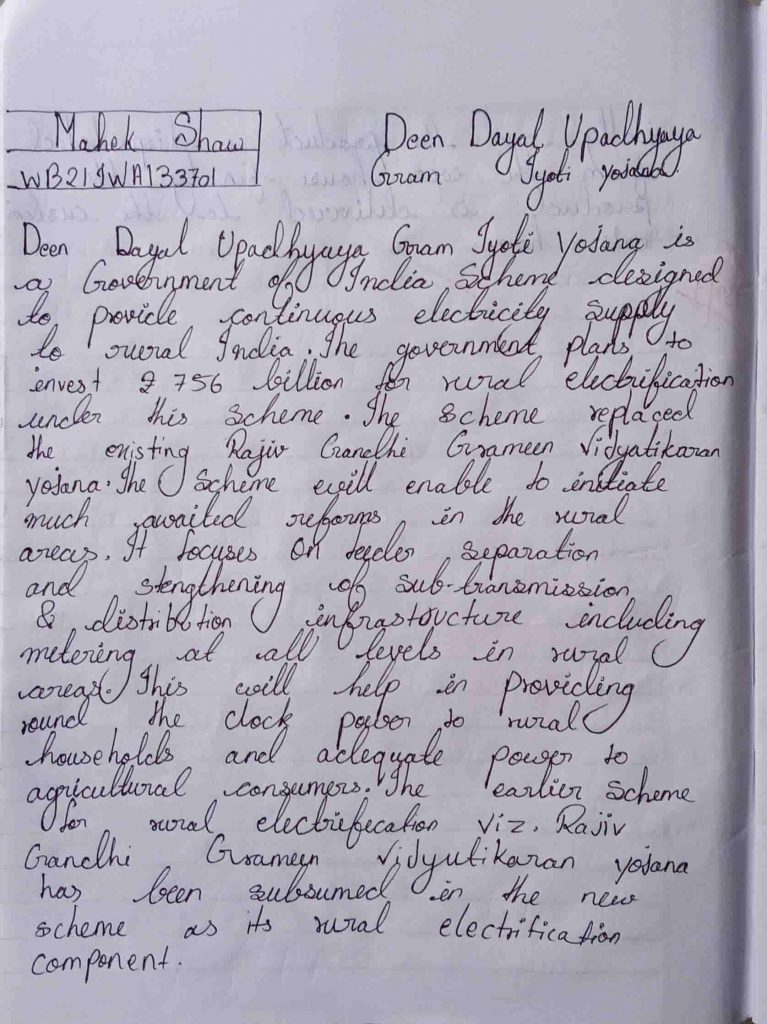 Mahek Shaw
WB21JWA133701
Deen Dayal Upadhyaya
Gram Jyoti yojana.
Deen Dayal Upadhyaya Gram Jyoti Yojana is
a Government of India Scheme designed
to provide continuous electricity supply
to rural India. The government plans to
invest ₹ 756 billion for rural electrification
under this scheme. The scheme replaced
the existing Rajiv Gandhi Grameen Vidyatikaran
yojana. The Scheme will enable to initiate
much awaited reforms in the rural
areas. It focuses on feeder separation
and stengthening of sub-transmission
& distribution infrastructure including
metering at all levels in rural
areas. This will help in providing
round the clock power to rural
households and adequate power to
agricultural consumers. The earlier scheme
for rural electrefecation viz. Rajiv
Gandhi Grameen Vidyutikaran yojana
has been subsumed in the new
scheme as its rural electrification
component.